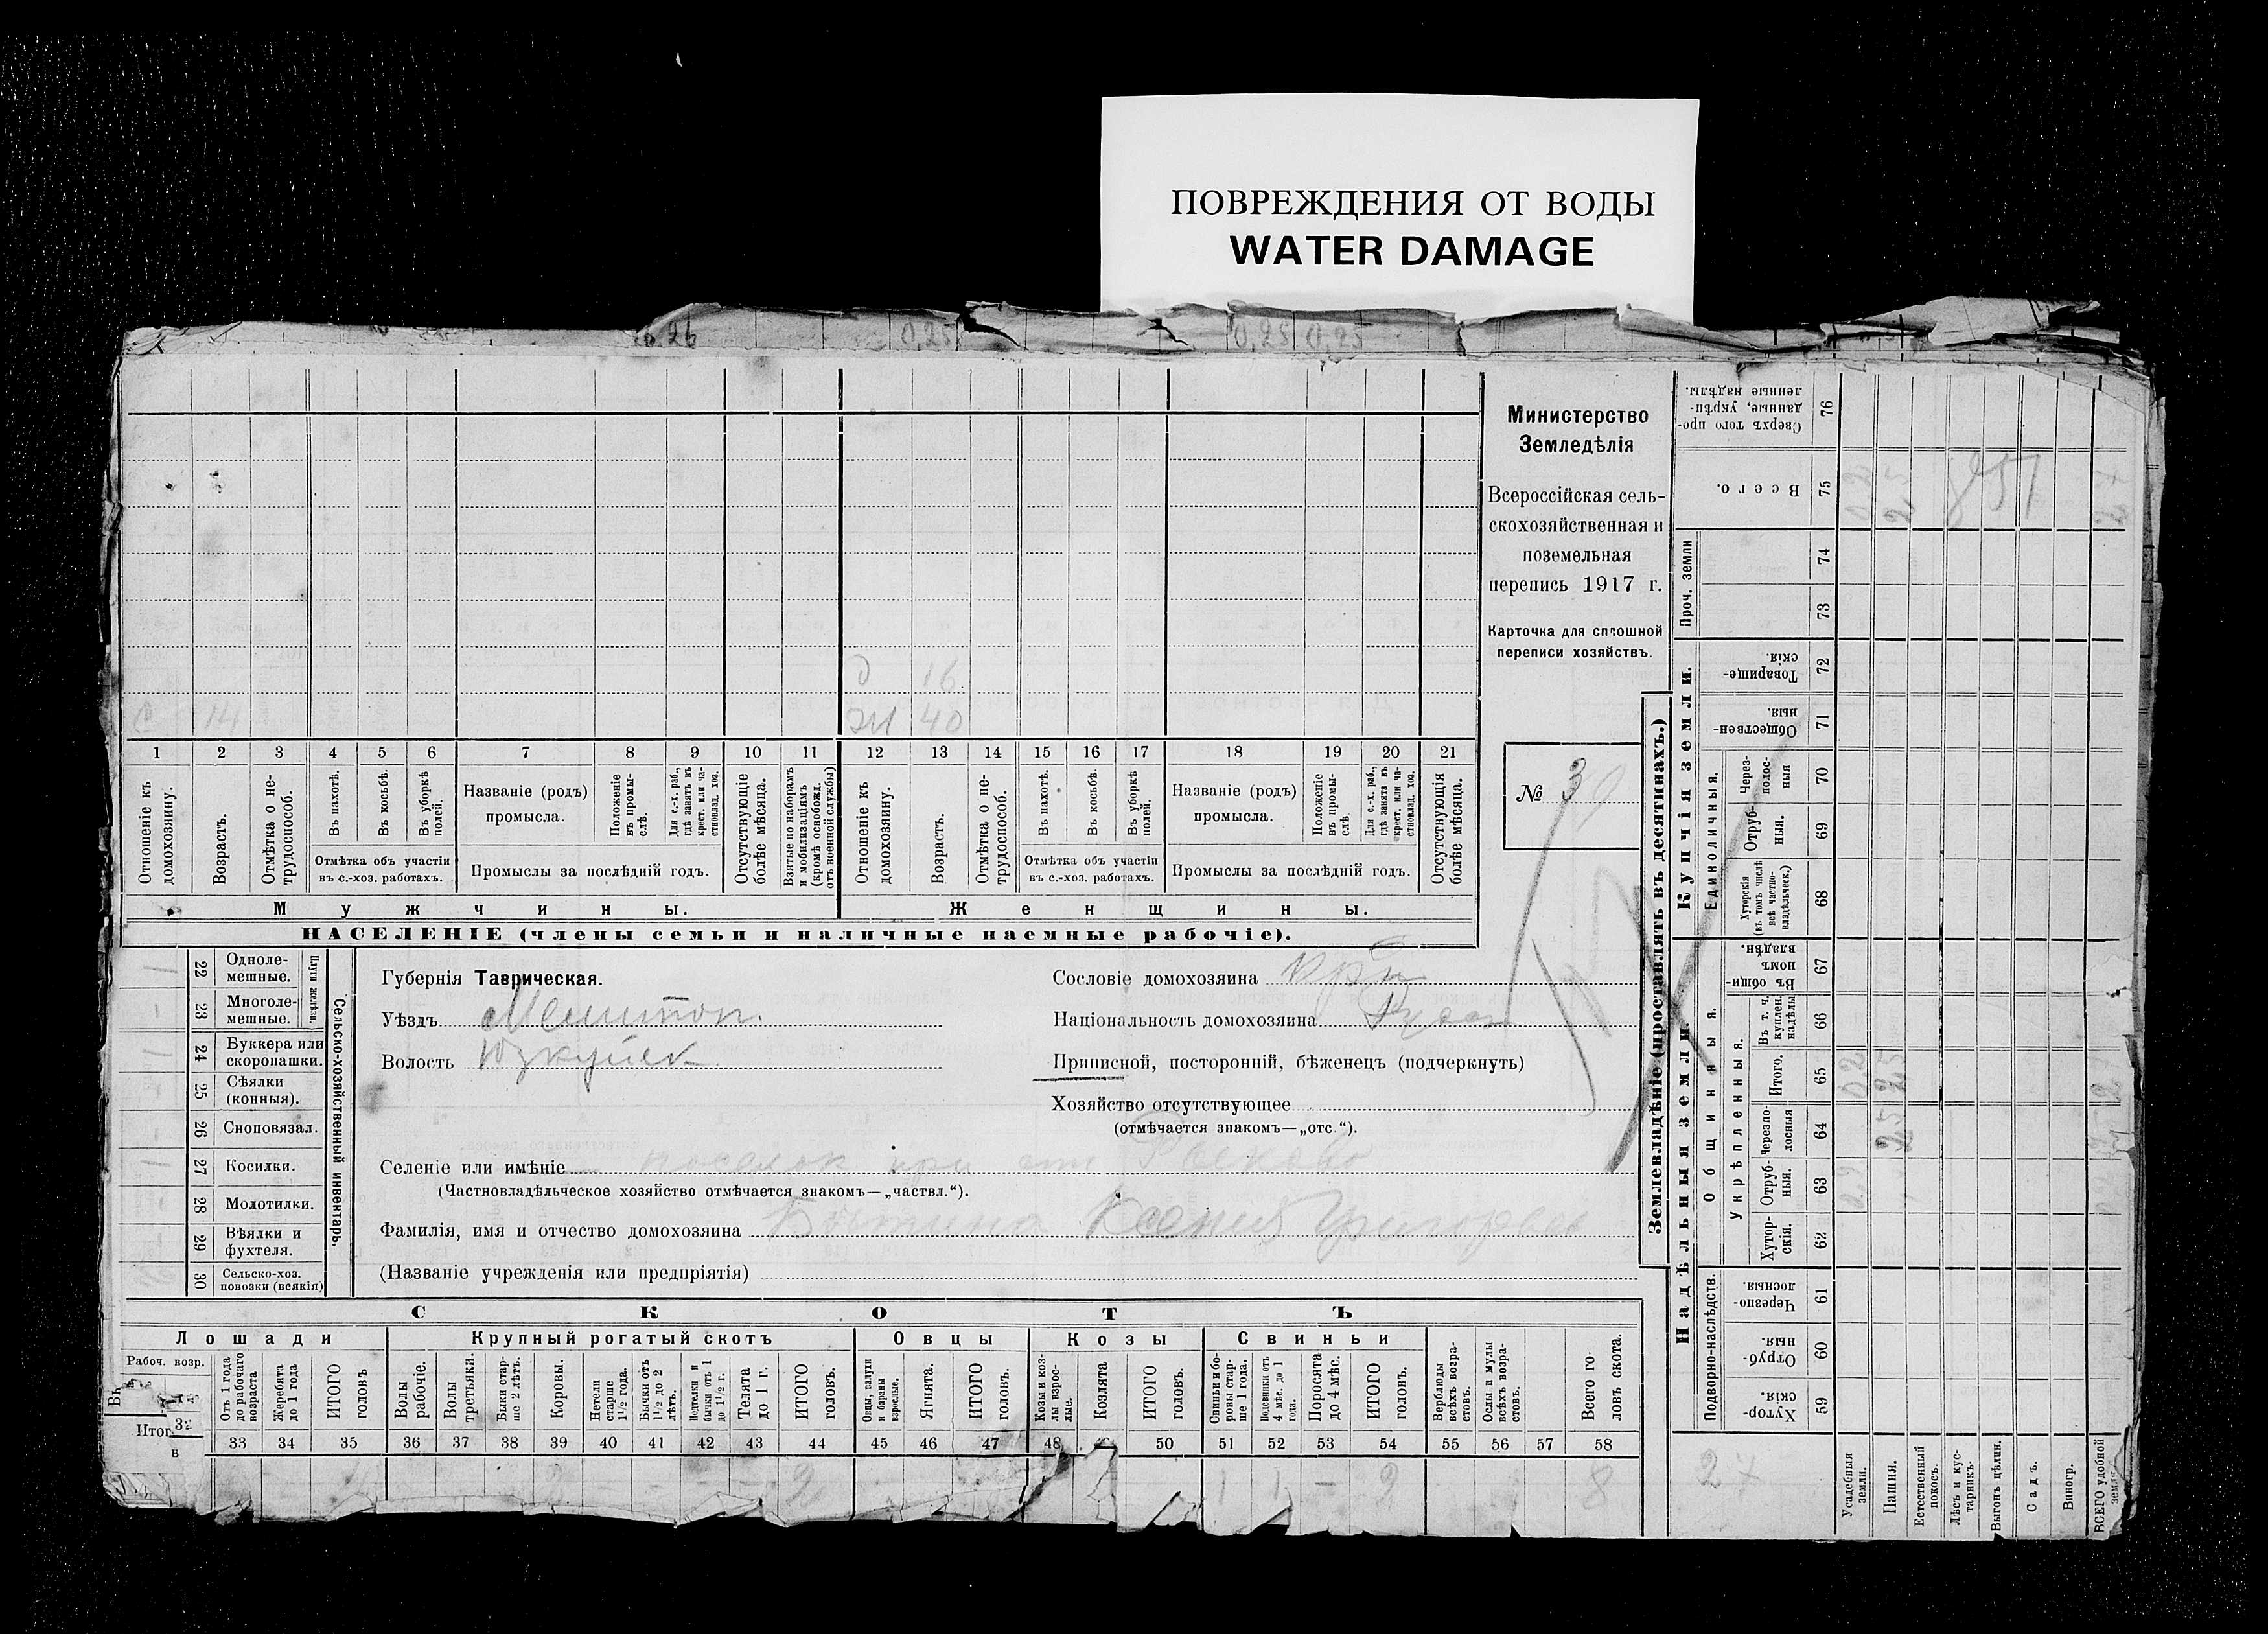 ПОВРЕЖДЕНИЯ ОТ ВОДЫ
WATER DAMAGE
0,25 0,25 0,25
Министерство
Земледѣлія
Всероссійская сель-
скохозяйственная и
поземельная
перепись 1917 г.
Карточка для сплошной
переписи хозяйствъ.
№ 39
д 16
14 жи 40
1 2 3 4 5 6 7 8 9 10 11 12 13 14 15 16 17 18 19 20 21
Отношеніе къ домохозяину.
Возрастъ.
Отмѣтка о не-трудоспособ.
Въ пахотѣ.
Въ косьбѣ.
Въ уборкѣ полей.
Отмѣтка объ участіи
въ с.-хоз. работахъ.
Названіе (родъ)
промысла.
Положеніе въ промы-слѣ.
Для с.-х. раб., гдѣ занятъ въ крест. или ча-стновлад. хоз.
Промыслы за послѣдній годъ.
Отсутствующіе болѣе мѣсяца.
Взятые по наборамъ и мобилизаціямъ (кромѣ освобожд. отъ военной службы)
Отношеніе къ домохозяину.
Возрастъ.
Отмѣтка о не-трудоспособ.
Въ пахотѣ.
Въ косьбѣ.
Въ уборкѣ полей.
Отмѣтка объ участіи
въ с.-хоз. работахъ.
Названіе (родъ)
промысла.
Положеніе въ промы-слѣ.
Для с.-х. раб., гдѣ занята въ крест. или ча-стновлад. хоз.
Промыслы за послѣдній годъ.
Отсутствующія болѣе мѣсяца.
Мужчины. Женщины.
НАСЕЛЕНІЕ (члены семьи и наличные наемные рабочіе).
22 Одноле-мешные.
23 Многоле-мешные.
Плуги желѣзн.
24 Буккера или скоропашки.
25 Сѣялки (конныя).
26 Сноповязал.
27 Косилки.
28 Молотилки.
29 Вѣялки и фухтеля.
30 Сельско-хоз. повозки (всякія)
Сельско-хозяйственный инвентарь.
Губернія Таврическая.
Уѣздъ Мелитоп.
Волость Юзкуйск
Сословіе домохозяина кр-н
Національность домохозяина Русс
Приписной, посторонній, бѣженецъ (подчеркнуть)
Хозяйство отсутствующее
(отмѣчается знакомъ—„отс.“).
Селеніе или имѣніе поселок при ст.
(Частновладѣльческое хозяйство отмѣчается знакомъ—„частвл.“).
Фамилія, имя и отчество домохозяина Ксения
(Названіе учрежденія или предпріятія)
СКОТЪ
Лошади Крупный рогатый скотъ Овцы Козы Свиньи
Рабоч. возр.
Итог
Отъ 1 года до рабочаго возраста
Жеребята до 1 года
ИТОГО головъ
Волы рабочіе.
Волы третьяки.
Быки стар-ше 2 лѣтъ.
Коровы.
Нетели старше 1½ года.
Бычки отъ 1½ до 2 лѣтъ.
Подтелки и бычки отъ 1 до 1½ г.
Телята до 1 г.
ИТОГО головъ.
Овцы, валухи и бараны взрослые.
Ягнята.
ИТОГО головъ.
Козы и коз-лы взрос-лые.
Козлята
ИТОГО головъ.
Свиньи и бо-ровы стар-ше 1 года.
Подсвинки отъ 4 мѣс. до 1 года.
Поросята до 4 мѣс.
ИТОГО головъ.
Верблюды всѣхъ возра-стовъ.
Ослы и мулы всѣхъ возра-стовъ.
Всего го-ловъ скота.
33 34 35 36 37 38 39 40 41 42 43 44 45 46 47 48 50 51 52 53 54 55 56 57 58
2 – – 2 – 1 1 – 2 8
Землевладѣніе (проставлять въ десятинахъ.)
Купчія земли.
Надѣльныя земли.
Сверхъ того про-данные, укрѣп-ленные надѣлы. 76
Всего. 75
Проч. земли 74 73
Товарище-скія. 72
Обществен-ныя. 71
Единоличныя.
Через-полос-ныя 70
Отруб-ныя. 69
Хуторскія (въ томъ числѣ всѣ частно-владѣльческ.) 68
Общинныя.
Въ общин-номъ владѣн. 67
Укрѣпленныя.
Въ т. ч. куплен. надѣлы 66
Итого. 65
Черезпо-лосныя 64
Отруб-ныя. 63
Хутор-скія. 62
Подворно-наслѣдств.
Черезпо-лосныя. 61
Отруб-ныя. 60
Хутор-скія. 59
27
Усадебныя земли.
Пашня.
Естественный покосъ.
Лѣсъ и кус-тарникъ.
Выгонъ цѣлин.
Садъ.
Виногр.
ВСЕГО удобной земли